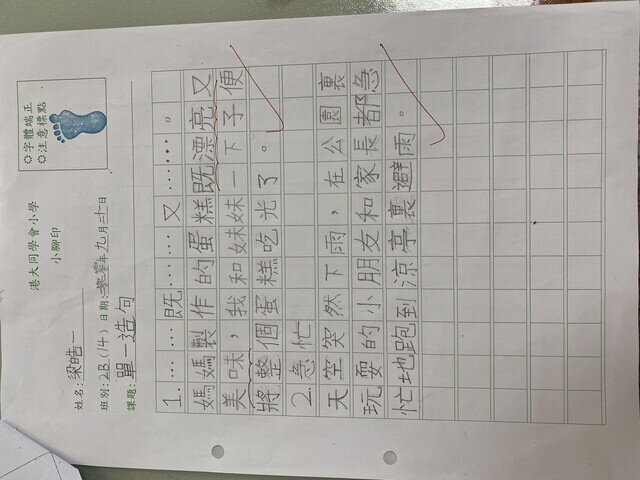 港大同學會小學
小腳印
✿字體端正
✿注意標點
姓名：梁皓一
班別：2B(14) 日期：年九月日
課題：單一造句
1.……既……又……。
媽媽製作的蛋糕既漂亮又
美味，我和妹妹一下子便
將整個蛋糕吃光了。
2.急忙
天空突然下雨，在公園裏
玩耍的小朋友和家長都急
忙地跑到涼亭裏避雨。